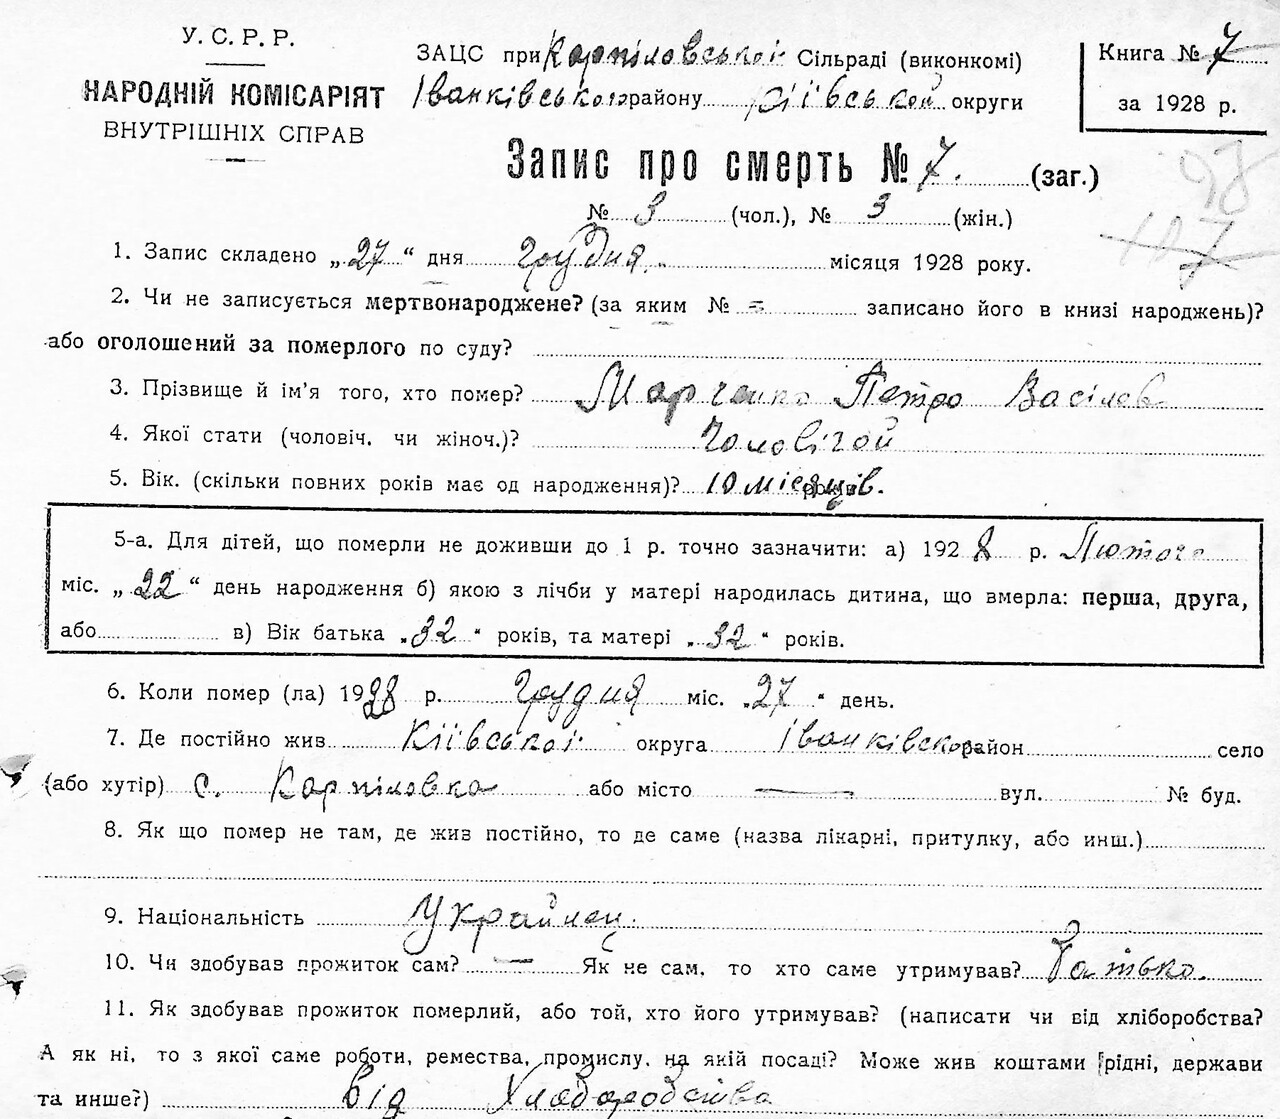 У. С. Р. Р.
НАРОДНІЙ КОМІСАРІЯТ
ВНУТРІШНІХ СПРАВ
ЗАЦС при Карпіловської Сільраді (виконкомі)
Іванківського району Київської округи
Книга № 7
за 1928 р.
Запис про смерть № 7. (заг.)
98
127
№ 3 (чол.), № 3 (жін.)
1. Запис складено „27“ дня грудня місяця 1928 року.
2. Чи не записується мертвонароджене? (за яким № = записано його в книзі народжень)?
або оголошений за померлого по суду?
3. Прізвище й ім’я того, хто помер? Марченко Петро Васілев
4. Якої стати (чоловіч. чи жіноч.)? Чоловічой
5. Вік. (скільки повних років має од народження)? 10 місяців.
5-а. Для дітей, що померли не доживши до 1 р. точно зазначити: а) 1928 р. Лютого
міс. „22“ день народження б) якою з лічби у матері народилась дитина, що вмерла: перша, друга,
або в) Вік батька „32“ років, та матері „32“ років.
6. Коли помер (ла) 1928 р. грудня міс. „27“ день.
7. Де постійно жив Київської округа Іванківско район село
(або хутір) с. Карпіловка або місто — вул. № буд.
8. Як що помер не там, де жив постійно, то де саме (назва лікарні, притулку, або инш.)
9. Національність Українец.
10. Чи здобував прожиток сам? — Як не сам, то хто саме утримував? Батько.
11. Як здобував прожиток померлий, або той, хто його утримував? (написати чи від хліборобства?
А як ні, то з якої саме роботи, ремества, промислу, на якій посаді? Може жив коштами рідні, держави
та инше?) Від Хлеборобства